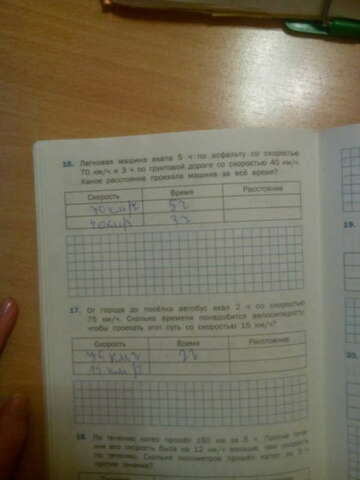 16. Легковая машина ехала 5 ч по асфальту со скоростью
70 км/ч и 3 ч по грунтовой дороге со скоростью 40 км/ч.
Какое расстояние проехала машина за всё время?
Скорость Время Расстояние
5ч
3ч
17. От города до посёлка автобус ехал 2 ч со скоростью
75 км/ч. Сколько времени понадобится велосипедисту,
чтобы проехать этот путь со скоростью 15 км/ч?
Скорость Время Расстояние
2ч
18. По течению катер прошёл 150 км за 5 ч. Против тече-
ния его скорость была на 12 км/ч меньше, чем скорость
по течению. Сколько километров прошёл катер за 3 ч
против течения?
19.